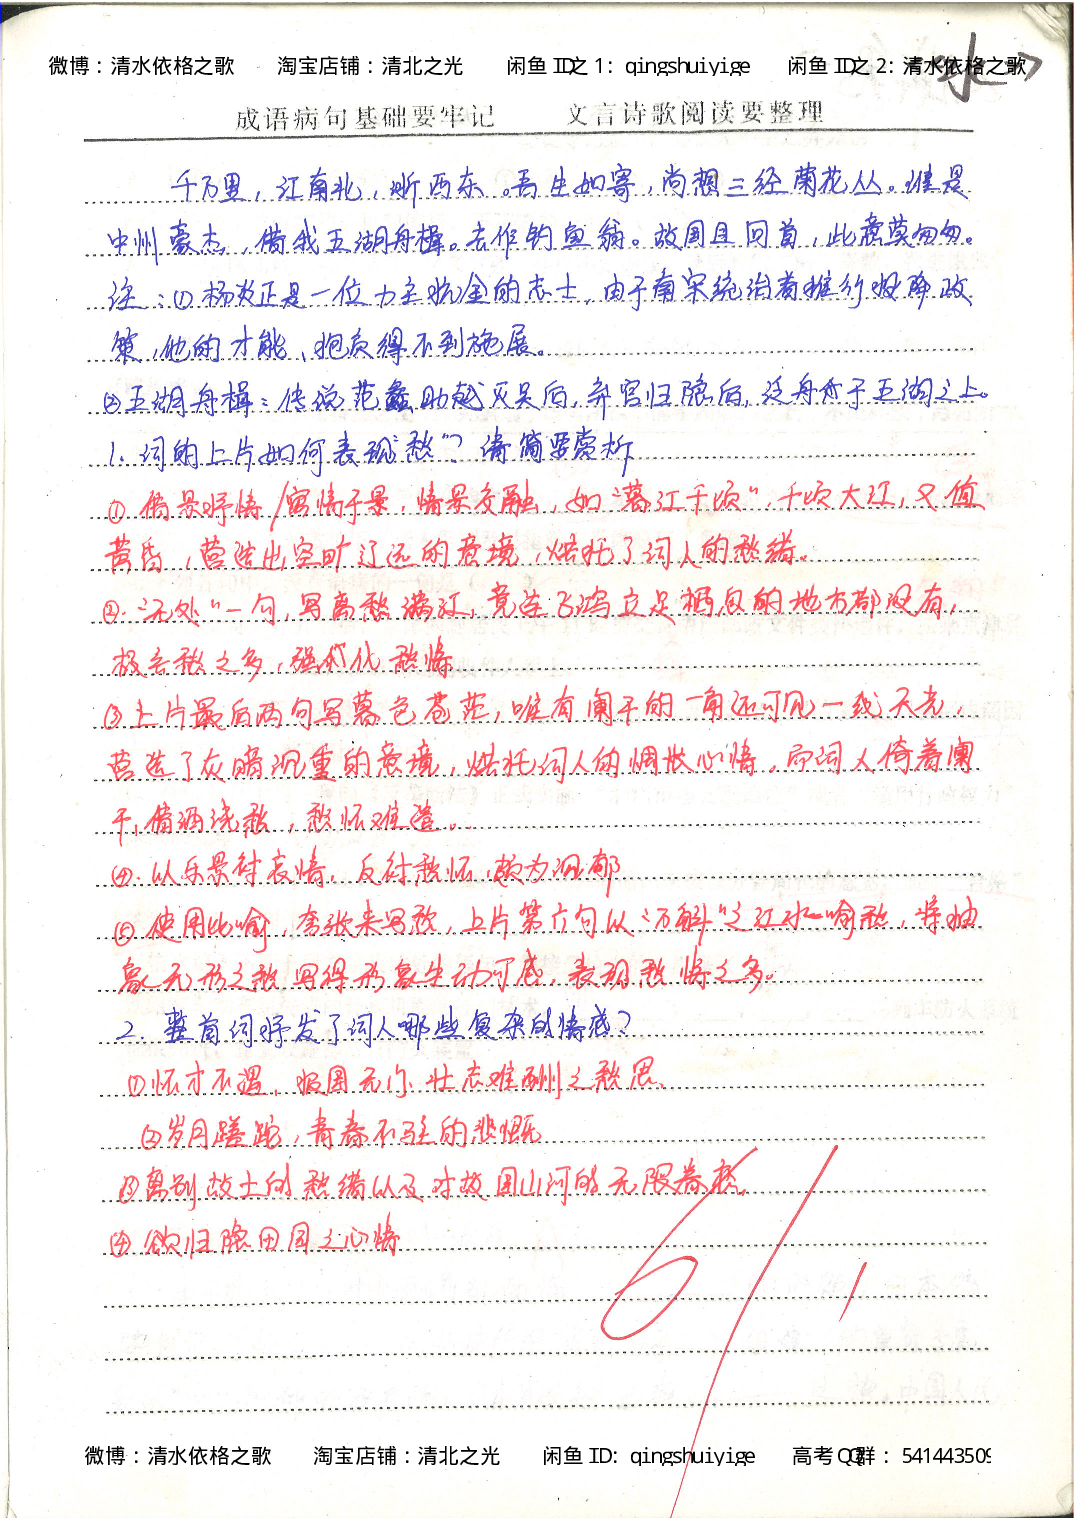 微博：清水依格之歌 淘宝店铺：清北之光 闲鱼ID之1：qingshuiyige 闲鱼ID之2：清水依格之歌
成语病句基础要牢记 文言诗歌阅读要整理
千万里，江南北，浙西东。吾生如寄，尚想三径菊花丛。谁是
中州豪杰，借我五湖舟楫。去作钓鱼翁。故国且回首，此意莫匆匆。
注：①杨炎正是一位力主抗金的志士，由于南宋统治者推行投降政
策，他的才能、抱负得不到施展。
②五湖舟楫：传说范蠡助越灭吴后，弃官归隐后，泛舟于五湖之上。
1、词的上片如何表现"愁"？请简要赏析
①借景抒情/寓情于景，情景交融，如"暮江千顷"，千顷大江，又值
黄昏，营造出空旷辽远的意境，烘托了词人的愁绪。
②."无处"一句，写离愁满江，竟连飞鸿立足栖息的地方都没有，
极言愁之多，强化愁情
③上片最后两句写暮色苍茫，唯有阑干的一角还可见一线天光，
营造了灰暗沉重的意境，烘托词人的惆怅心情，而词人倚着阑
干，借酒浇愁，愁怀难遣。
④.以乐景衬哀情，反衬愁怀，颇为沉郁
⑤使用比喻，夸张来写愁，上片第六句以"万斛"之江水喻愁，将抽
象无形之愁写得形象生动可感，表现愁情之多。
2.整首词抒发了词人哪些复杂的情感？
①怀才不遇，报国无门，壮志难酬之愁思、
②岁月蹉跎，青春不驻的悲慨
③离别故土的愁绪以及对故国山河的无限眷恋，
④欲归隐田园之心情
微博：清水依格之歌 淘宝店铺：清北之光 闲鱼ID：qingshuiyige 高考QQ群：541443509